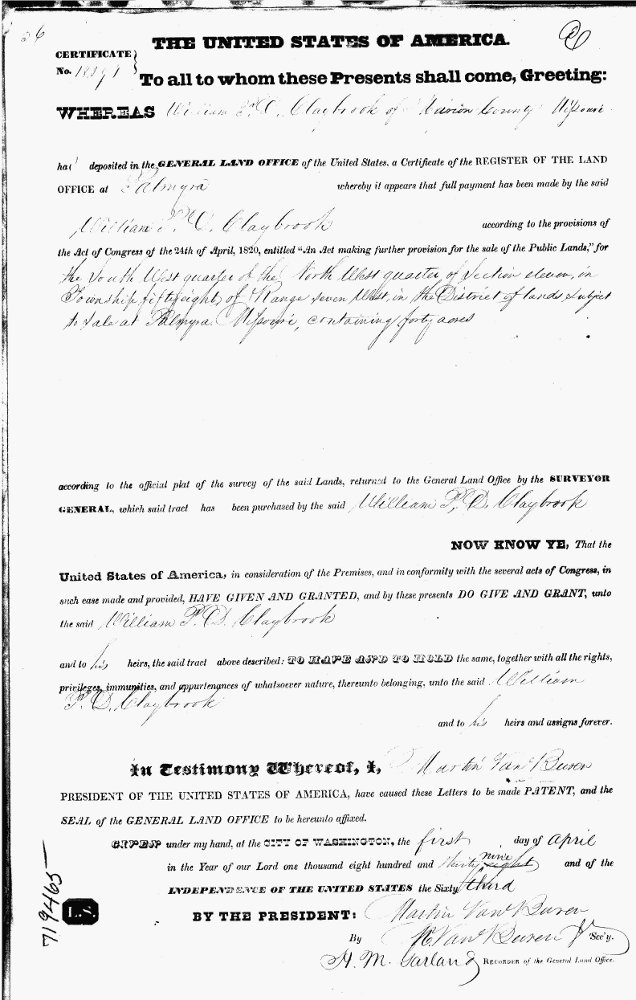 26
THE UNITED STATES OF AMERICA.
CERTIFICATE
No.
To all to whom these Presents shall come, Greeting:
WHEREAS William P. D. Claybrook of Marion County Missouri
ha deposited in the GENERAL LAND OFFICE of the United States, a Certificate of the REGISTER OF THE LAND
OFFICE at Palmyra whereby it appears that full payment has been made by the said
William P. D. Claybrook according to the provisions of
the Act of Congress of the 24th of April, 1820, entitled "An Act making further provision for the sale of the Public Lands," for
the South West quarter of the North West quarter of Section eleven, in
Township fifty eight, of Range seven West, in the District of lands subject
to sale at Palmyra Missouri, containing forty acres
according to the official plat of the survey of the said Lands, returned to the General Land Office by the SURVEYOR
GENERAL, which said tract has been purchased by the said William P. D. Claybrook
NOW KNOW YE, That the
United States of America, in consideration of the Premises, and in conformity with the several acts of Congress, in
such case made and provided, HAVE GIVEN AND GRANTED, and by these presents DO GIVE AND GRANT, unto
the said William P. D. Claybrook
and to his heirs, the said tract above described: TO HAVE AND TO HOLD the same, together with all the rights,
privileges, immunities, and appurtenances of whatsoever nature, thereunto belonging, unto the said William
P. D. Claybrook
and to his heirs and assigns forever.
In Testimony Whereof, I, Martin Van Buren
PRESIDENT OF THE UNITED STATES OF AMERICA, have caused these Letters to be made PATENT, and the
SEAL of the GENERAL LAND OFFICE to be hereunto affixed.
GIVEN under my hand, at the CITY OF WASHINGTON, the first day of April
nine
in the Year of our Lord one thousand eight hundred and thirty eight and of the
INDEPENDENCE OF THE UNITED STATES the Sixty third
BY THE PRESIDENT: Martin Van Buren
By M Van Buren Jr Sec'y.
H. M. Garland RECORDER of the General Land Office.
719465
L.S.